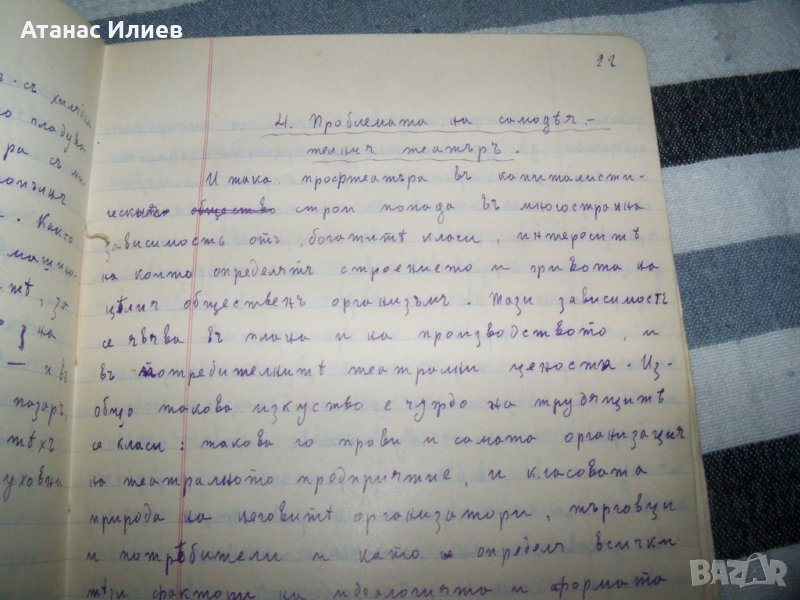 Атанас Илиев
22
4. Проблемата на самодѣя-
телния театъръ.
И така профтеатъра въ капиталисти-
ческото общество строй попада въ многостранна
зависимость отъ богатитѣ класи, интереситѣ
на които опредѣлятъ строението и живота на
цѣлия общественъ организъмъ. Тази зависимость
се чувства въ плана и на производството, и
въ потребителнитѣ театрални ценности. Из-
общо такова изкуство е чуждо на трудящитѣ
се класи; такова го прави и самата организация
на театралното предприятие, и класовата
природа на неговитѣ организатори, търговци
и потрѣбители и като се опредѣля всички
тѣзи фактори на идеологията и формата
ъ. съ хиляди
ра съ ми-
. Както
машин-
тѣ, за
на
— и въ
пазаръ,
тѣхъ
уховни
BAZAR
bg